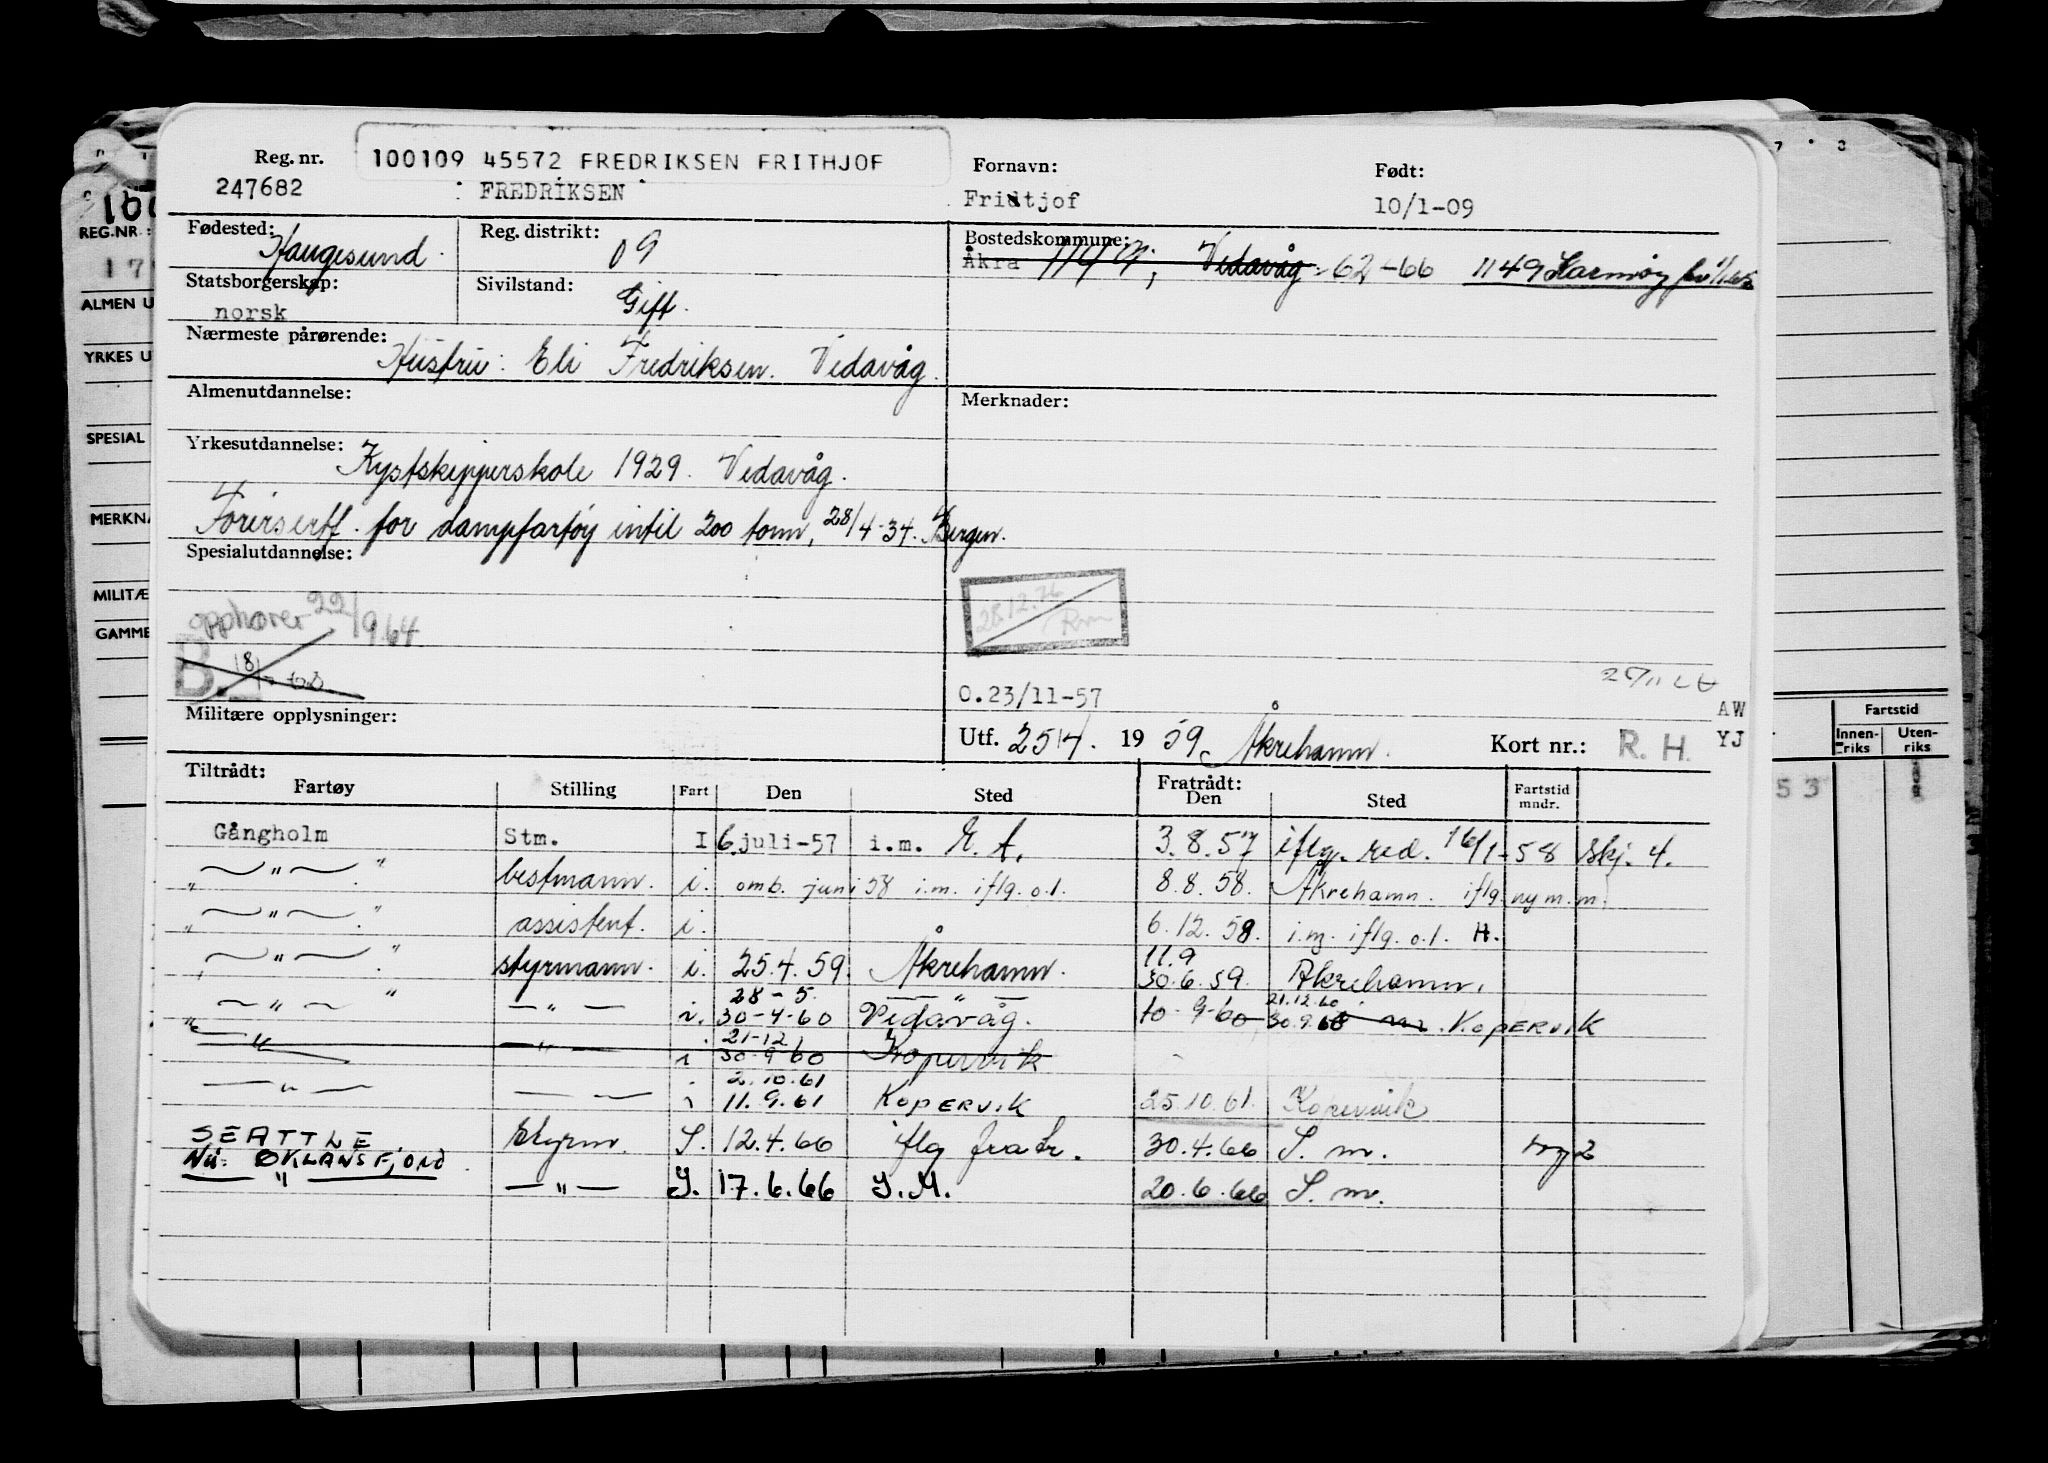 Reg. nr. 100109 45572 FREDRIKSEN FRITHJOF Fornavn: Født:
247682 FREDRIKSEN Fridtjof 10/1-09
Fødested: Haugesund Reg. distrikt: 09 Bostedskommune:
Åkra Vedavåg 62-66 1149 Karmøy
Statsborgerskap: norsk Sivilstand: Gift.
Nærmeste pårørende:
Hustru: Eli Fredriksen. Vedavåg.
Almenutdannelse: Merknader:
Yrkesutdannelse: Kystskipperskole 1929. Vedavåg.
for dampfartøy intil 200 tonn, 28/4-34. Bergen.
Spesialutdannelse:
opphører 22/9.64
28.12.76
B.
O.23/11-57
AW
Militære opplysninger: Utf. 25/4. 1959 Åkrehamn. Kort nr.: R. H. YJ
Tiltrådt: Fratrådt:
Fartøy Stilling Fart Den Sted Den Sted Fartstid mndr.
Gångholm Stm. I 6 juli-57 i.m. E. A. 3.8.57 iflg. red. 16/1-58 Skj. 4.
— " — bestmann. i. omb. juni 58 i.m. iflg. o.l. 8.8.58. Åkrehamn. iflg. ny m.m.
— " — assistent. i. 6.12.58. i.m. iflg. o.l. H.
— " — styrmann. i. 25.4.59. Åkrehamn. 11.9 30.6.59. Åkrehamn.
28-5. — " — 21.12.60
— " — — " — i. 30-4-60 Vedavåg. 10-9-60 30.9.60 KOPERVIK
21-12
— " — — " — i 30-9 60 Kopervik
2.10.61
— " — — " — i 11.9.61 KOPERVIK 25.10.61. Kopervik
SEATTLE Styrm. S. 12.4.66 iflg fra tr. 30.4.66 S. m.
Nu: ØKLANSFJORD
— " — — " — S. 17.6.66 S.M. 20.6.66 S. m.
REG.NR.:
ALMEN U
YRKES U
SPESIAL
MERKNA
MILITÆ
GAMME
Fartstid
Innen-riks Uten-riks
53